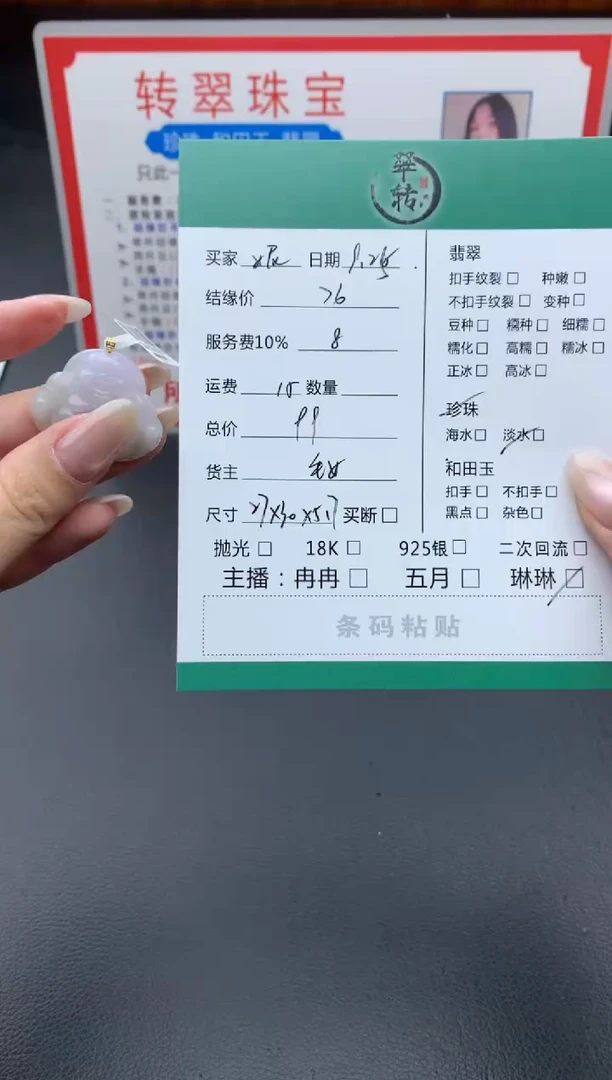 转翠珠宝
珍珠 和田玉 翡翠
只此一
翠
转
买家 日期 9.25
结缘价 76
服务费10% 8
运费 15 数量
总价 99
货主
尺寸 27×30×5.17 买断
翡翠
扣手纹裂 种嫩
不扣手纹裂 变种
豆种 糯种 细糯
糯化 高糯 糯冰
正冰 高冰
珍珠
海水 淡水
和田玉
扣手 不扣手
黑点 杂色
抛光 18K 925银 二次回流
主播：冉冉 五月 琳琳
条码粘贴